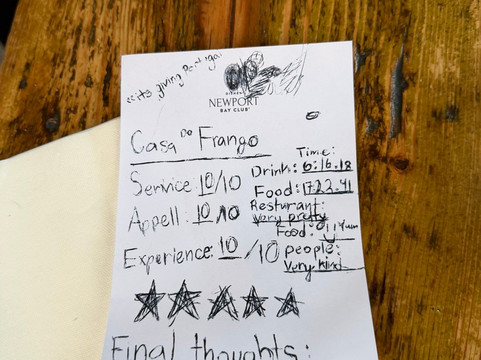 "it's giving Portugal
NEWPORT
BAY CLUB
Casa Do Frango
Time:
Service: 10/10
Drink: 6:16.18
Appell: 10/10
Food: 17:22.41
Resturant:
Very pretty
Experience: 10/10
Food: Yum
people:
Very kind
Final thoughts: